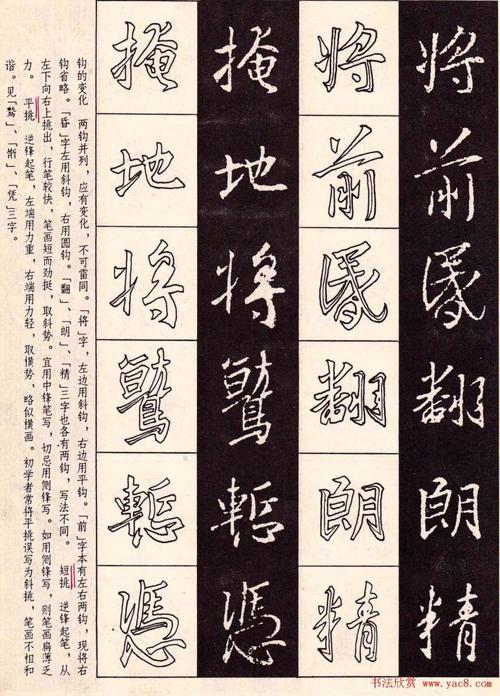 将前昬翻朗精
将前昬翻朗精
掩地将鷲憑
掩地将鷲憑
钩的变化 两钩并列，应有变化，不可雷同。「将」字，左边用斜钩，右边用平钩。「前」字本有左右两钩，现将右
钩省略。「昏」字左用斜钩，右用圆钩。「翻」、「朗」、「精」三字也各有两钩，写法不同。 短挑 逆锋起笔，从
左下向右上挑出，行笔较快，笔画短而劲挺，取斜势。宜用中锋笔写，切忌用侧锋写。如用侧锋写，则笔画扁薄乏
力。 平挑 逆锋起笔，左端用力重，右端用力轻，取横势，略似横画。初学者常将平挑误写为斜挑，笔画不相和
谐。见「鹫」、「惭」、「凭」三字。
书法欣赏 www.yac8.com